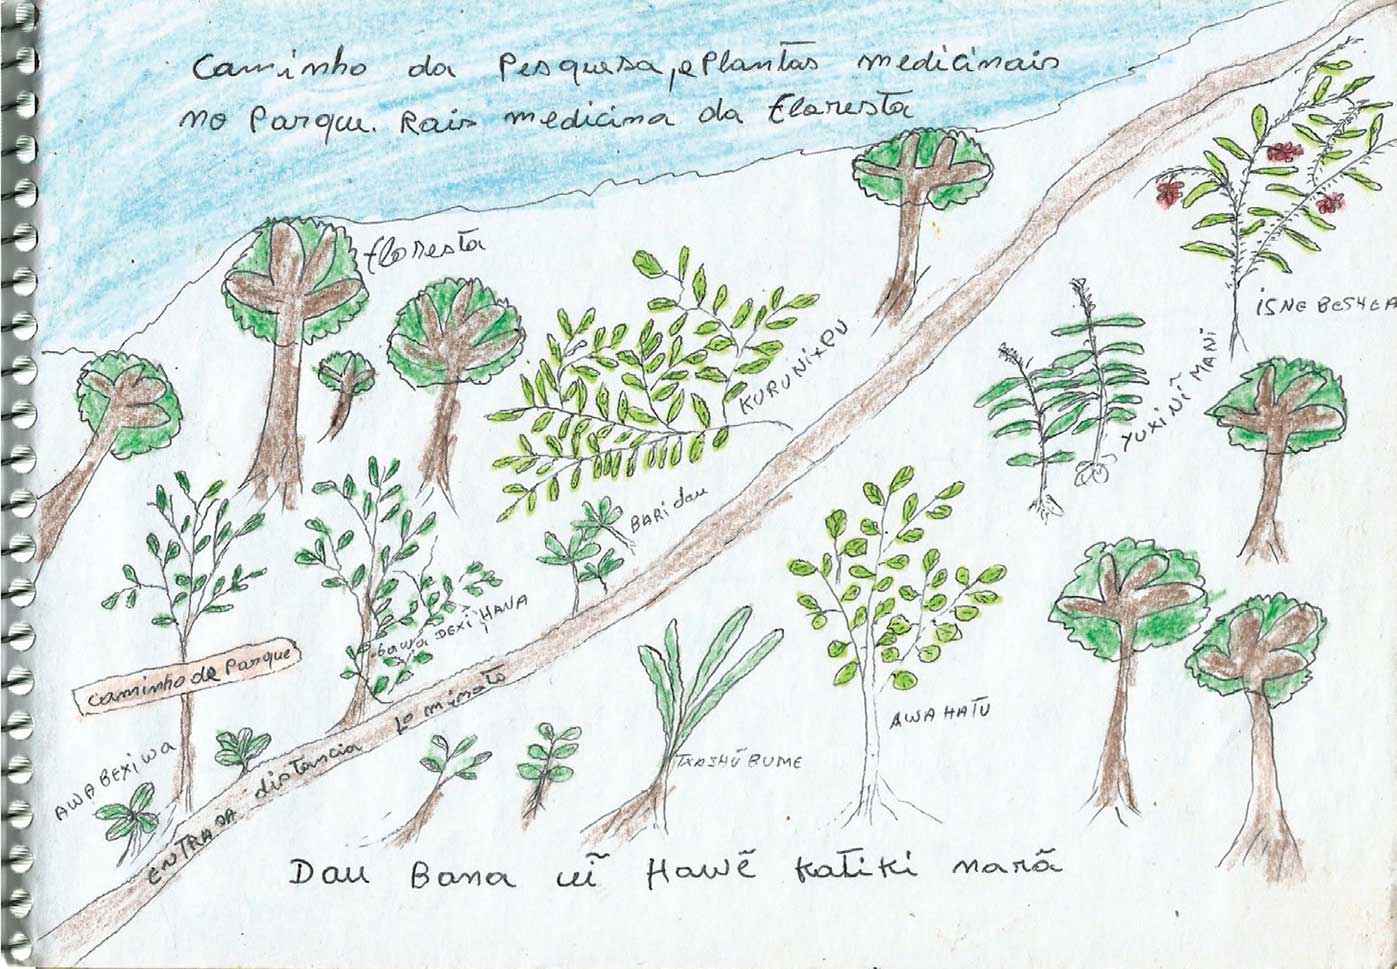 Caminho da Pesquesa, e Plantas medicinais
no Parque. Rais medicina da Floresta
Floresta
ISNE BESHEA
KURUNIXPU
YUXINĨ MANI
BARI dau
bawa DEXĨ HANA
caminho de Parque
AWA HATŨ
AWA BEXIWA
TXASHŨ BUME
ENTRADA distancia 10 minuto
Dau Bana uĩ Hawẽ Katiki narã